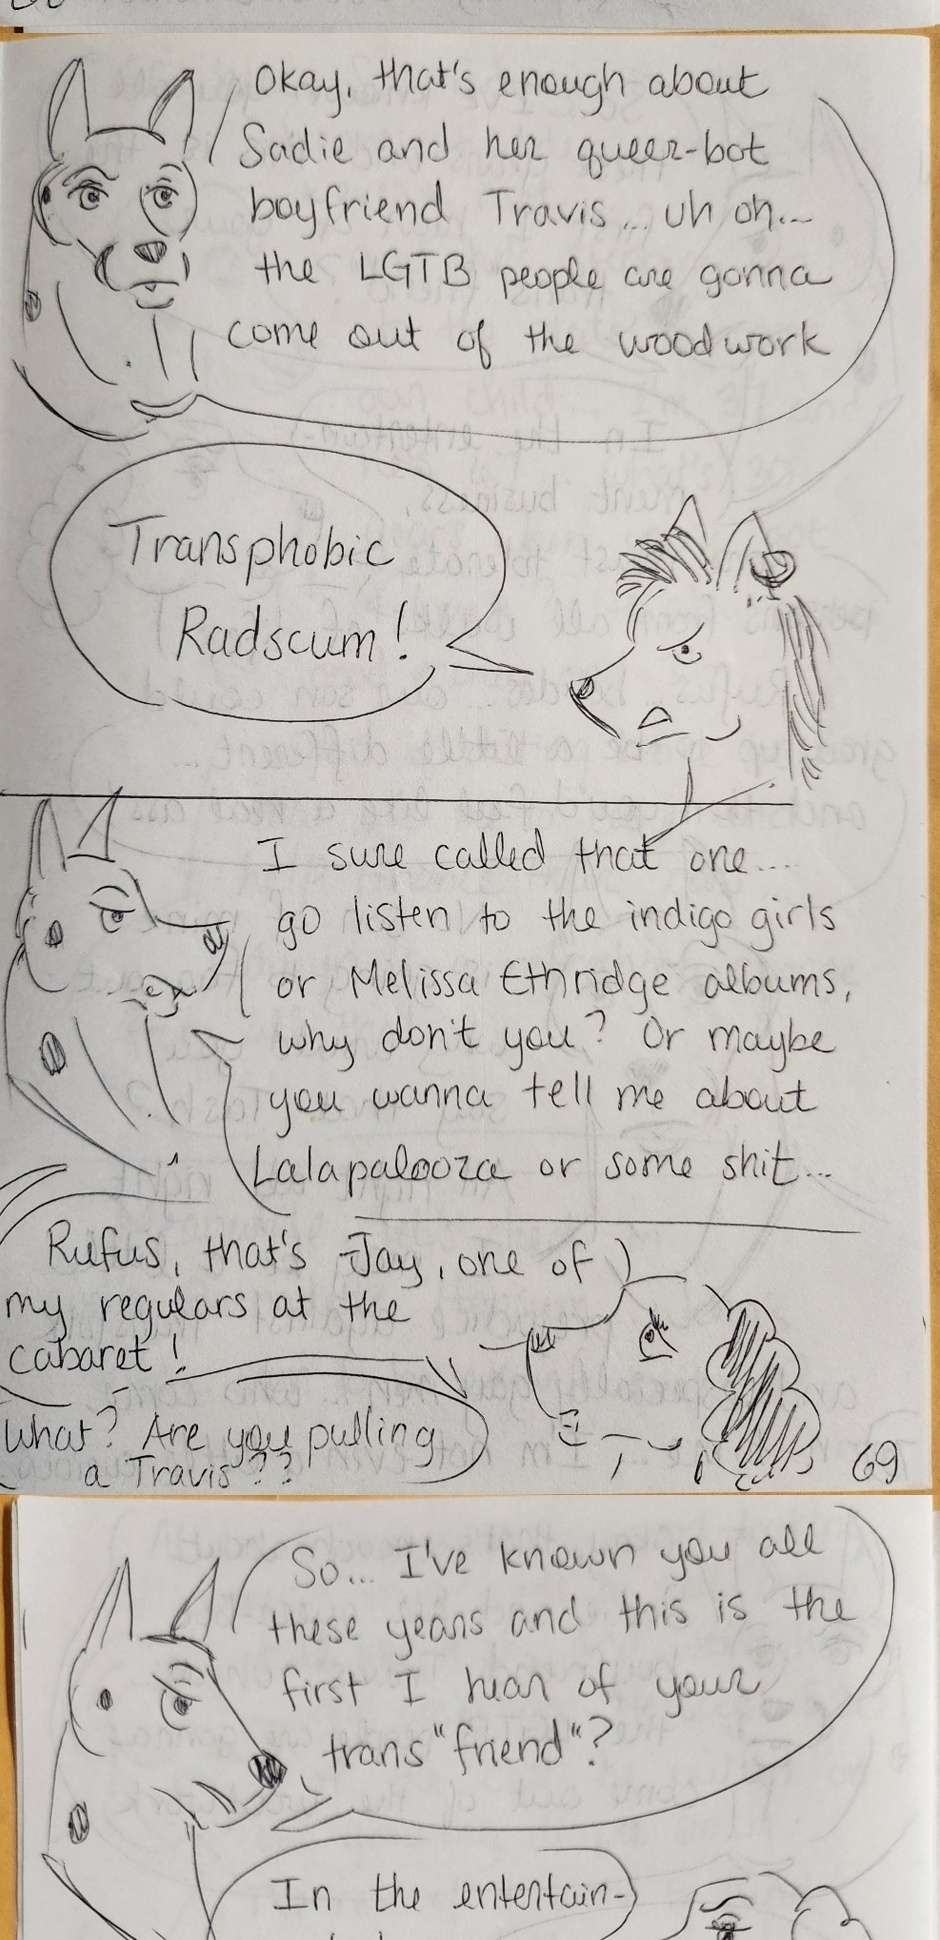 Okay, that's enough about
Sadie and her queer-bot
boyfriend Travis... uh oh...
the LGTB people are gonna
come out of the woodwork
Transphobic
Radscum!
I sure called that one....
go listen to the indigo girls
or Melissa Ethridge albums,
why don't you? Or maybe
you wanna tell me about
Lalapalooza or some shit...
Rufus, that's Jay, one of
my regulars at the
cabaret!
What? Are you pulling
a Travis??
69
So... I've known you all
these years and this is the
first I hear of your
trans "friend"?
In the entertain-